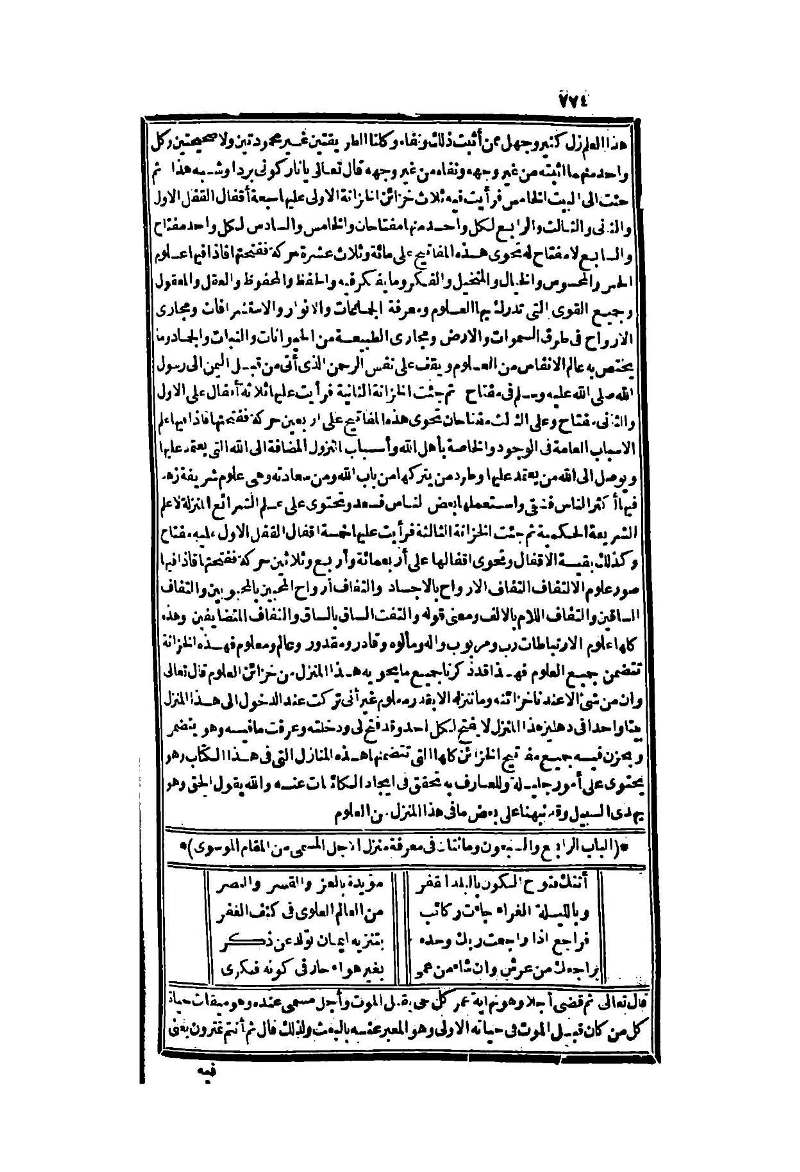 ٧٧٤
هذا العلم زل كثير وجهل ممن أثبت ذلك ونفاه وكلتا الطريقتين غير محمودتين ولا صحيحتين وكل
واحد منهما أثبته من غير وجهه ونفاه من غير وجهه قال تعالى يا نار كوني بردا وشبه هذا ثم
جئت الى البيت الخامس فرأيت فيه ثلاث خزائن الخزانة الاولى عليها سبعة أقفال القفل الاول
والثاني والثالث والرابع لكل واحد منها مفتاحان والخامس والسادس لكل واحد مفتاح
والسابع لا مفتاح له تحوى هذه المفاتيح على مائة وثلاث عشرة حركة ففتحتها فاذا فيها علوم
الحس والمحسوس والخيال والمتخيل والفكر وما يفكر فيه والحفظ والمحفوظ والعقل والمعقول
وجميع القوى التى تدرك بها العلوم ومعرفة الجلمات والانوار والاستشرافات ومجارى
الارواح فى طرق السموات والارض ومجارى الطبيعة من الحيوانات والنبات والجماد وما
يختص به عالم الانفاس من العلوم ويقف على نفس الرحمن الذى أتى من قبل اليمن الى رسول
الله صلى الله عليه وسلم فى مفتاح ثم جئت الخزانة الثانية فرأيت عليها ثلاثة أقفال على الاول
والثانى مفتاح وعلى الثالث مفتاحان تحوى هذه المفاتيح على اربعين حركة ففتحتها فاذا فيها علم
الاسباب العامة فى الوجود والخاصة بأهل الله وأسباب النزول المضافة الى الله التى يعتمد عليها
ويوصل الى الله من يعتمد عليها وطرد من يتركها من باب الله ومن سعادته وهى علوم شريفة زهد
فيها أكثر الناس فشقى واستعملها بعض الناس فسعد وتحتوى على علم الشرائع المنزلة لا علم
الشريعة الحكمية ثم جئت الخزانة الثالثة فرأيت عليها خمسة اقفال القفل الاول عليه مفتاح
وكذلك بقية الاقفال وتحوى اقفالها على أربعمائة وأربع وثلاثين حركة ففتحتها فاذا فيها
صور علوم الالتفاف التفاف الارواح بالاجساد والتفاف أرواح المحبين بالمحبوبين والتفاف
الساقين والتفاف اللام بالالف ومعنى قوله والتفت الساق بالساق والتفاف المتضايفين وهذه
كلها علوم الارتباطات رب ومربوب واله ومألوه وقادر ومقدور وعالم ومعلوم فهذه الخزانة
تتضمن جميع العلوم فهذا قد ذكرنا جميع ما يحويه هذا المنزل من خزائن العلوم قال تعالى
وان من شئ الا عندنا خزائنه وما ننزله الا بقدر معلوم غير أنى تركت عند الدخول الى هذا المنزل
بيتا واحدا فى دهليز هذا المنزل لا يفتح لكل احد وقد فتح لى ودخلته وعرفت ما فيه وهو يتضمن
ويخزن فيه جميع مفاتيح الخزائن كلها التى تتضمنها هذه المنازل التى فى هذا الكتاب وهو
يحتوى على أمور جليلة وللعارف به تحقق فى ايجاد الكائنات عنه والله يقول الحق وهو
يهدى السبيل وقد نبهنا على بعض ما فى هذا المنزل من العلوم
*(الباب الرابع والسبعون ومائتان فى معرفة منزل الاجل المسمى من المقام الموسوى)*
أتتك فتوح الكون بالبلد القفر مؤيدة بالعز والقسر والنصر
وبالليلة الغراء جاءت ركائب من العالم العلوى فى كنف الغفر
فراجع اذا راجعت ربك وحده بتنزيه ايمان تولد عن ذكر
يراجعك من عرش وان شاء من عمى بغير هواء حار فى كونه فكرى
قال تعالى ثم قضى أجلا وهو نهاية عمر كل حى يقبل الموت وأجل مسمى عنده وهو ميقات حياة
كل من كان قبل الموت فى حياته الاولى وهو المعبر عنه بالبعث ولذلك قال ثم أنتم تمترون يعنى
فيه